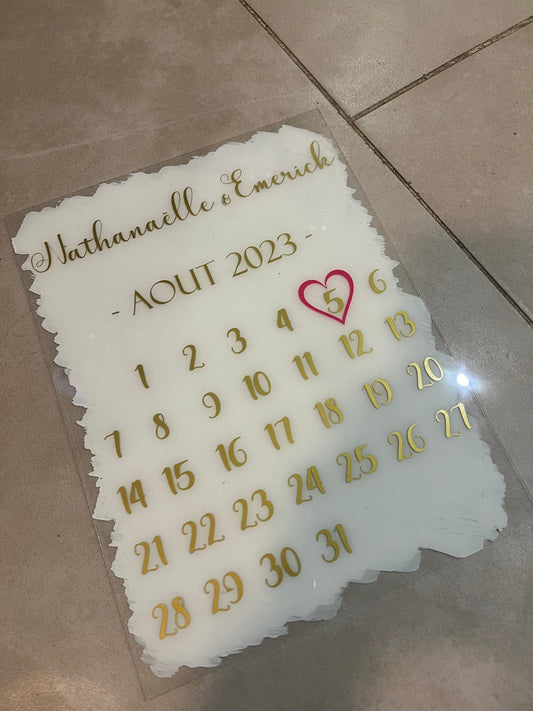 Nathanaëlle & Emerick
- AOUT 2023 -
1 2 3 4 5 6
7 8 9 10 11 12 13
14 15 16 17 18 19 20
21 22 23 24 25 26 27
28 29 30 31